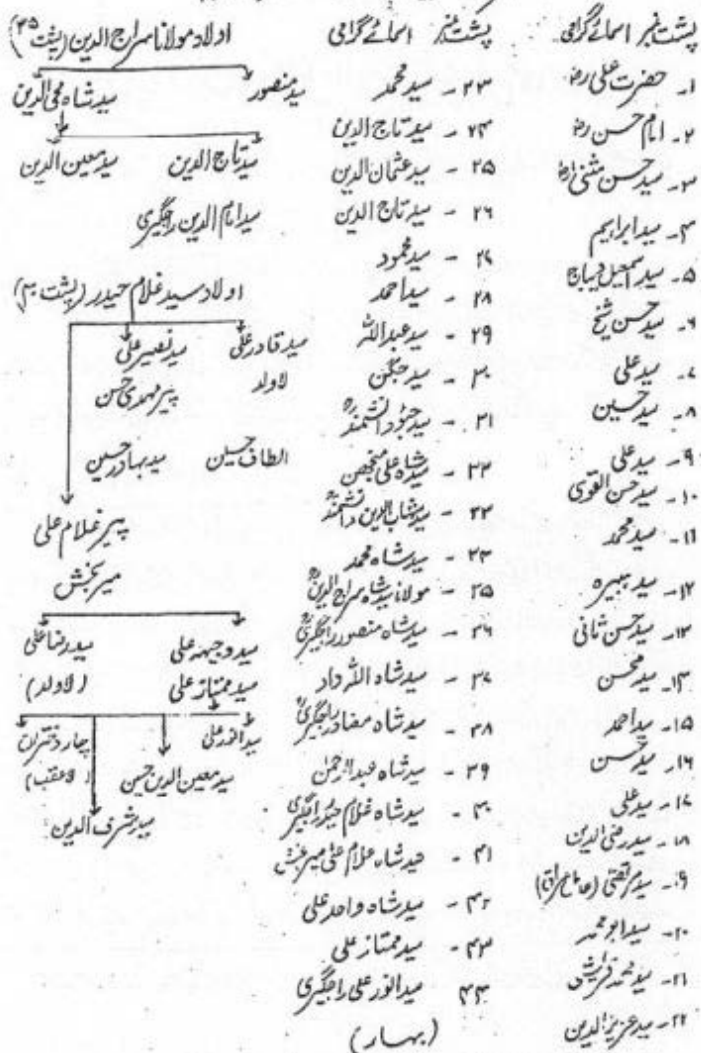 پشت نمبر اسمائے گرامی
۱۔ حضرت علی رضہ
۲۔ امام حسن رضہ
۳۔ سید حسن مثنیٰ رضہ
۴۔ سید ابراہیم
۵۔ سید اسمعیل دیباج
۶۔ سید حسن شیخ
۷۔ سید علی
۸۔ سید حسین
۹۔ سید علی
۱۰۔ سید حسن القوی
۱۱۔ سید محمد
۱۲۔ سید ہبیرہ
۱۳۔ سید حسن ثانی
۱۴۔ سید محسن
۱۵۔ سید احمد
۱۶۔ سید حسن
۱۷۔ سید علی
۱۸۔ سید رضی الدین
۱۹۔ سید مرتضیٰ
۲۰۔ سید ابو محمد
۲۱۔ سید محمد قریشی
۲۲۔ سید عزیز الدین
پشت نمبر اسمائے گرامی
۲۳ ۔ سید محمد
۲۴ ۔ سید تاج الدین
۲۵ ۔ سید عثمان الدین
۲۶ ۔ سید تاج الدین
۲۷ ۔ سید محمود
۲۸ ۔ سید احمد
۲۹ ۔ سید عبداللہ
۳۰ ۔ سید جگن
۳۱ ۔ سید دانشمند
۳۲ ۔ سید شاہ علی منجھن
۳۳ ۔ سید دانشمند
۳۴ ۔ سید شاہ محمد
۳۵ ۔ مولانا سید شاہ سراج الدین
۳۶ ۔ سید شاہ منصور راجگیری
۳۷ ۔ سید شاہ اللہ داد
۳۸ ۔ سید شاہ راجگیری
۳۹ ۔ سید شاہ عبدالرحمٰن
۴۰ ۔ سید شاہ غلام حیدر راجگیری
۴۱ ۔ سید شاہ غلام علی میر بخش
۴۲ ۔ سید شاہ واحد علی
۴۳ ۔ سید ممتاز علی
۴۴ سید انور علی راجگیری
(بہار)
اولاد مولانا سراج الدین (پشت ۳۵)
سید منصور سید شاہ محی الدین
سید تاج الدین سید معین الدین
سید امام الدین راجگیری
اولاد سید غلام حیدر (پشت ۴۰)
سید قادر علی سید نصیر علی
لاولد پیر مہدی حسن
الطاف حسین سید بہادر حسین
پیر غلام علی
میر بخش
سید وجہہ علی سید رضا علی
سید ممتاز علی (لاولد)
سید انور علی سید معین الدین حسین چہار دختران
(لاعقب)
سید شرف الدین